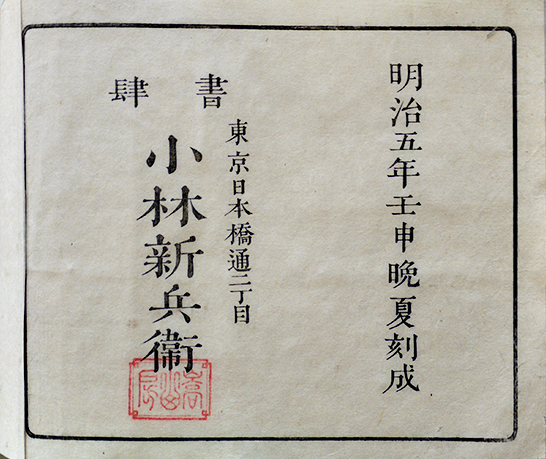 明治五年壬申晩夏刻成
書肆
東京日本橋通二丁目
小林新兵衞